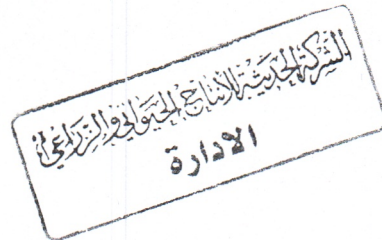 الشركة الحديثة للانتاج الحيواني والزراعي
الادارة